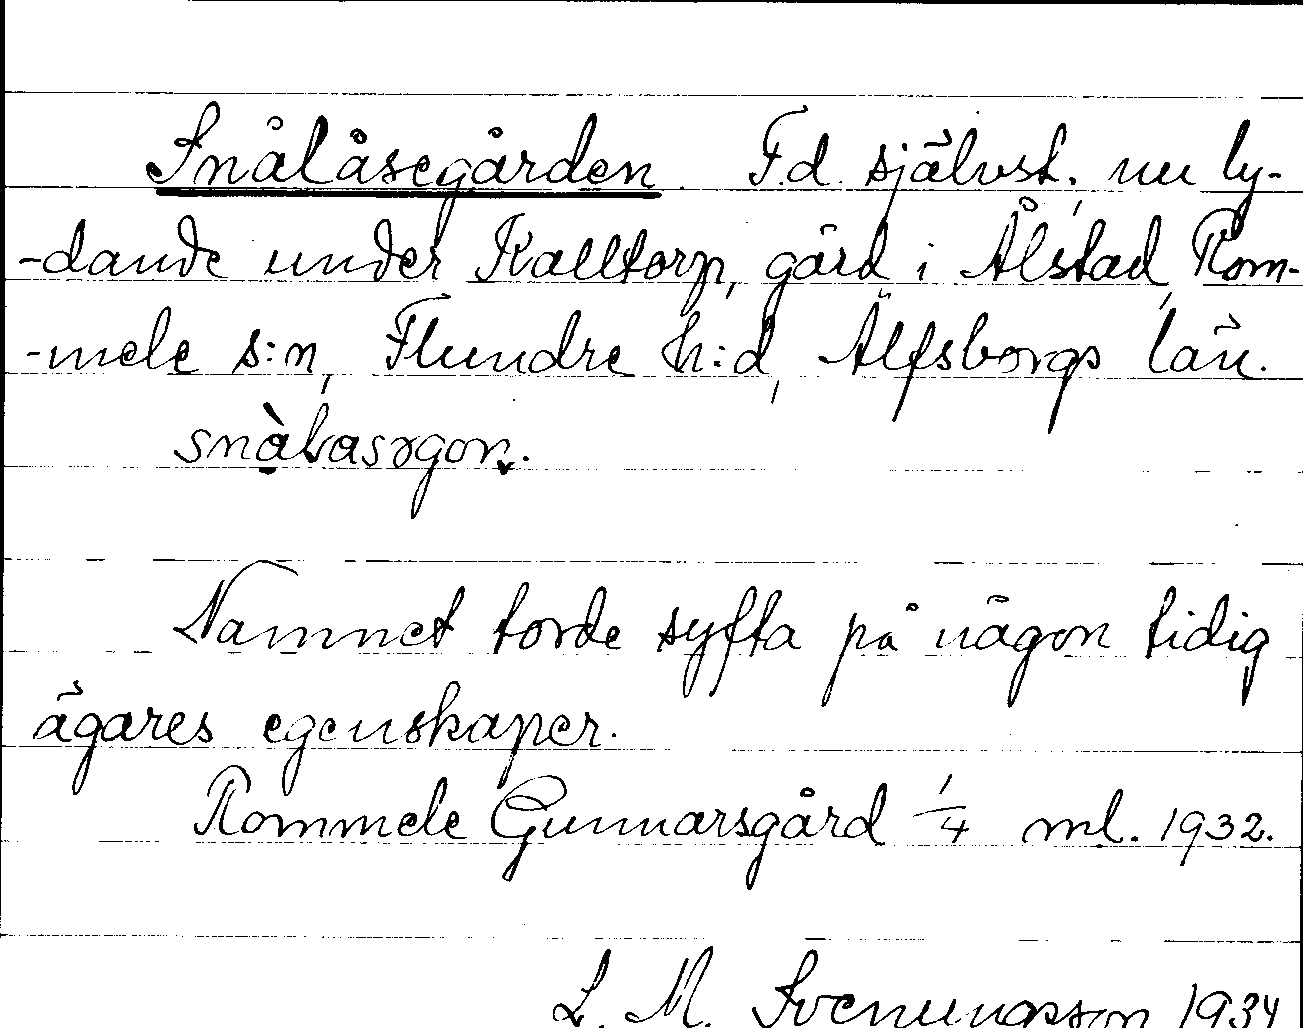 Snålåsegården. F.d. självst., nu ly-
-dande under Kalltorp, gård i Ålstad, Rom-
-mele s:n, Flundre h:d, Älfsborgs län.
Namnet torde syfta på någon tidig
ägares egenskaper.
Rommele Gunnarsgård 1/4 ml. 1932.
L. M. Svenungsson 1934